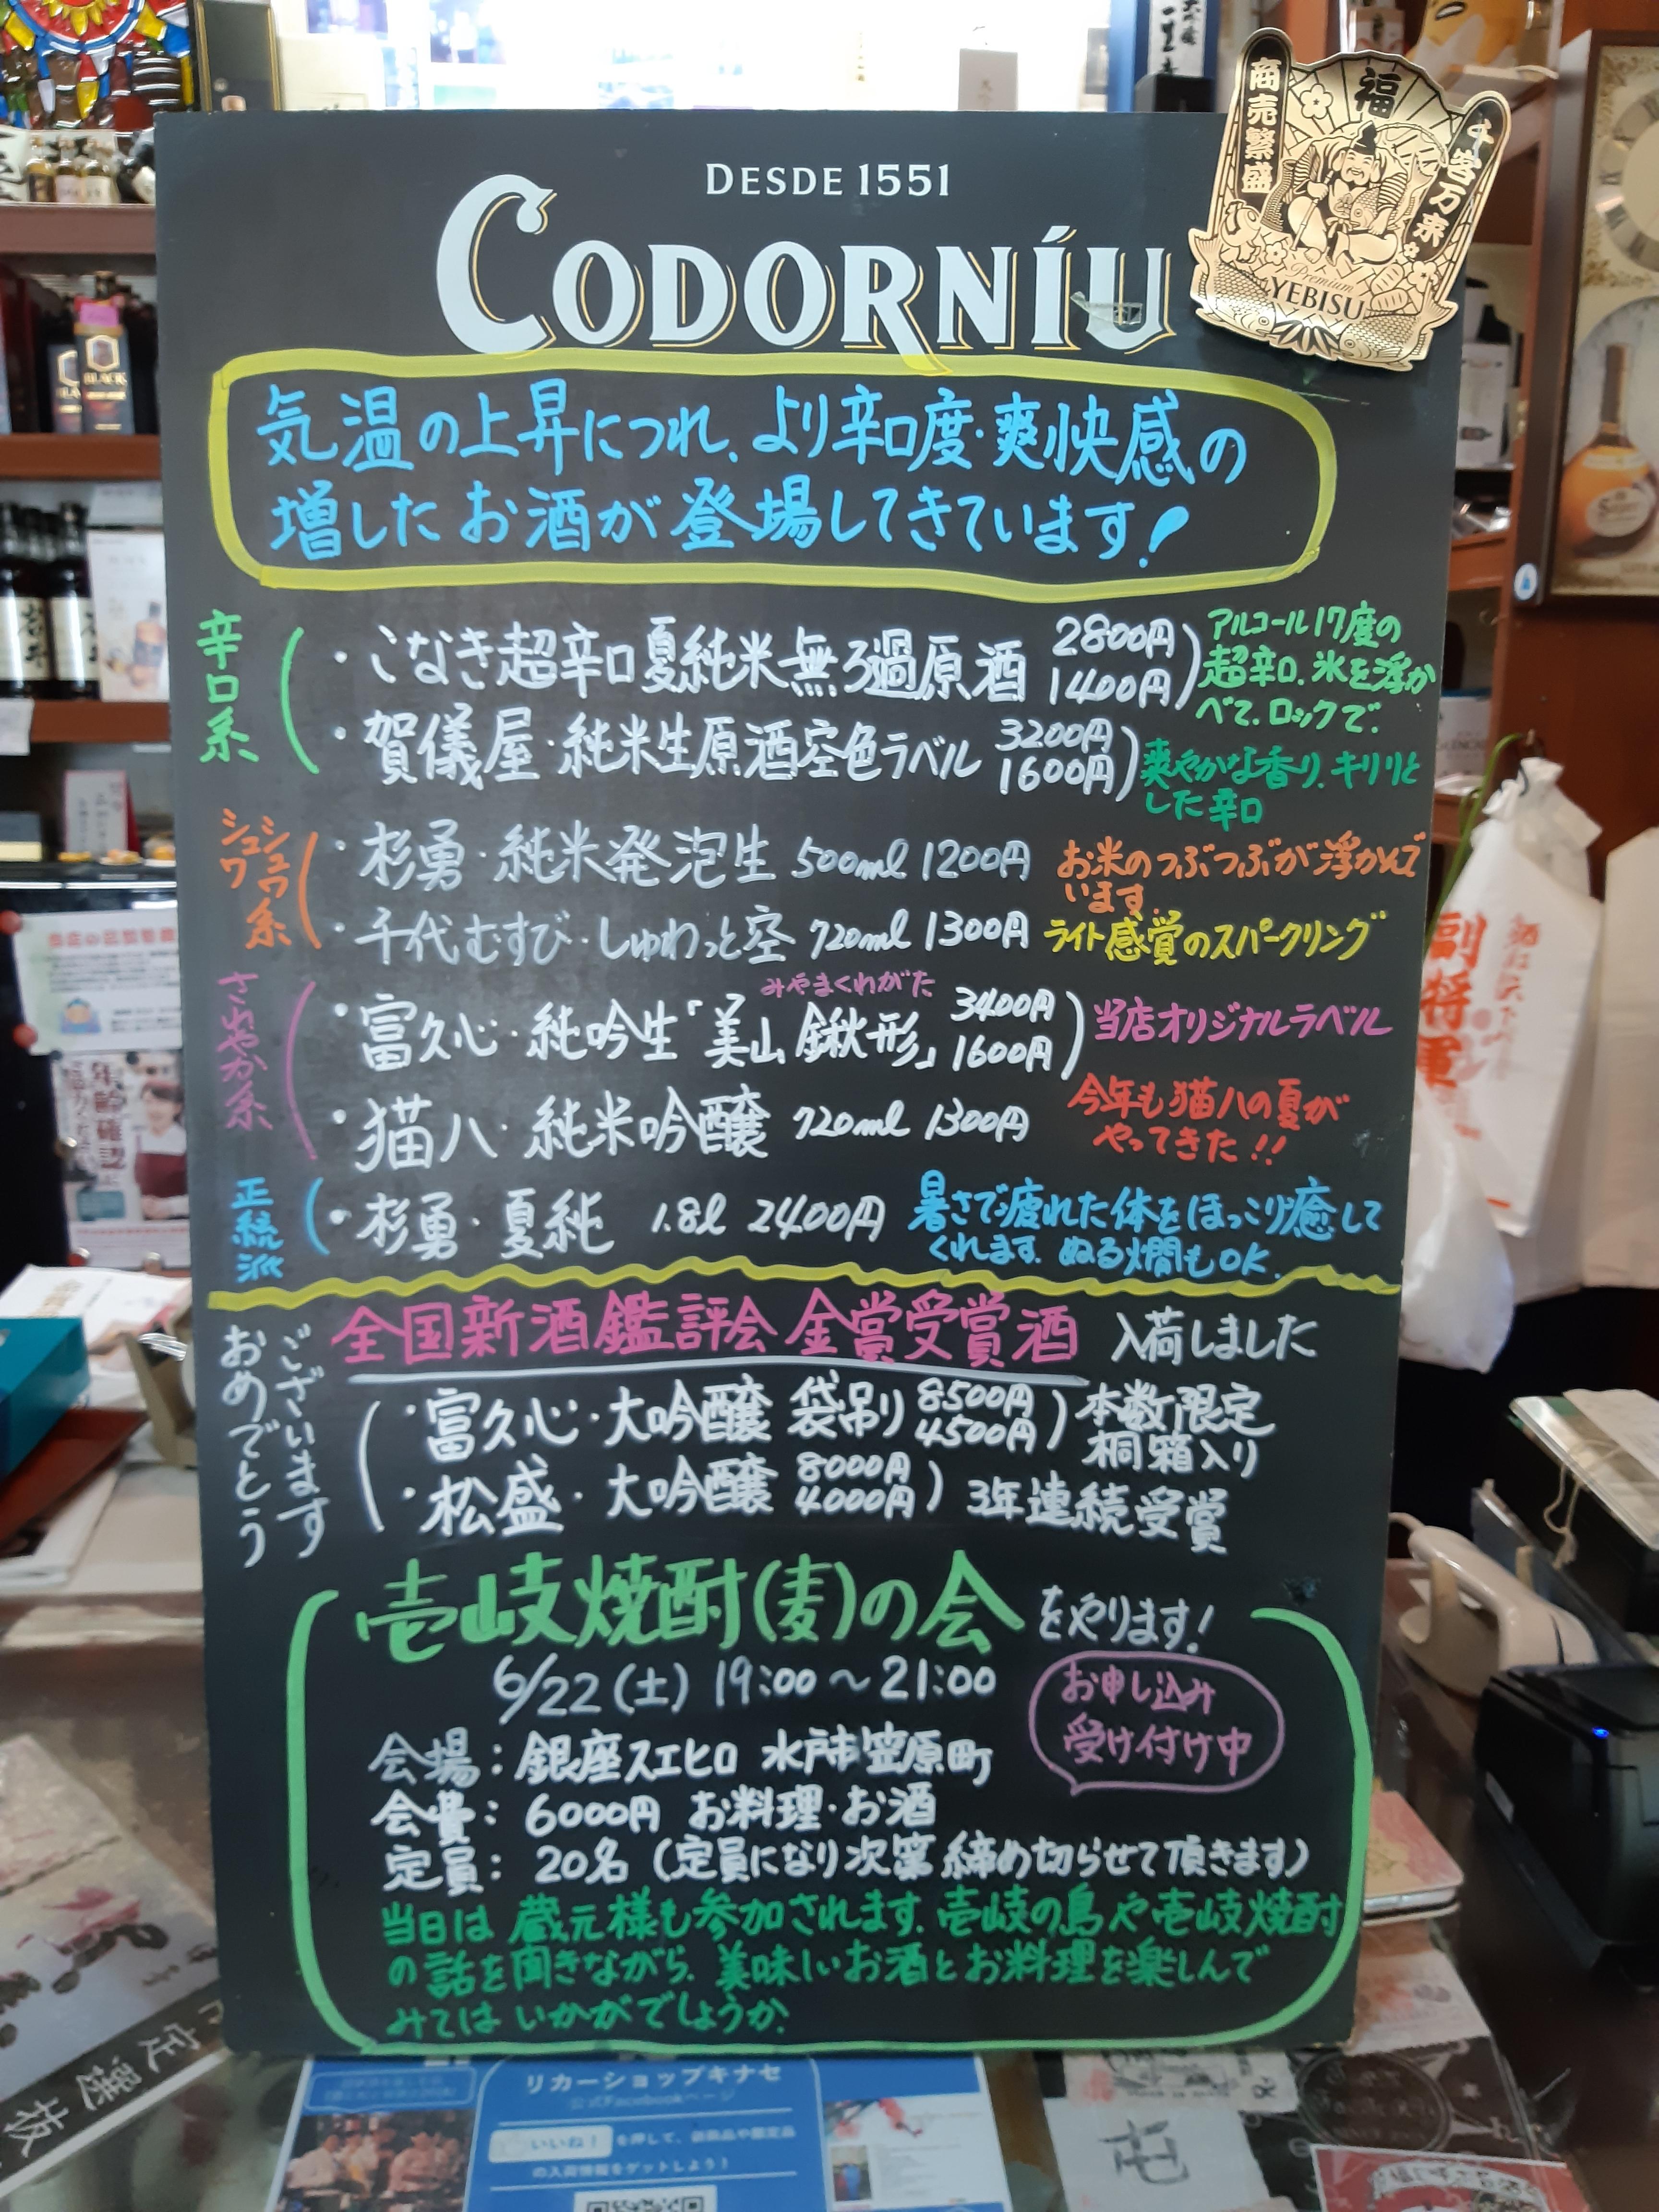 DESDE 1551
CODORNÍU
商売繁盛
福
千客万来
Premium
YEBISU
気温の上昇につれ、より辛口度・爽快感の
増したお酒が登場してきています!
辛口系
・こなき超辛口夏純米無ろ過原酒 2800円 1400円
アルコール17度の
超辛口.氷を浮か
べて、ロックで.
・賀儀屋・純米生原酒空色ラベル 3200円 1600円
爽やかな香り、キリリと
した辛口
シュワシュワ系
・杉勇・純米発泡生 500ml 1200円
お米のつぶつぶが浮かんで
います.
・千代むすび・しゅわっと空 720ml 1300円 ライト感覚のスパークリング
さわやか系
みやまくわがた
・富久心・純吟生「美山鍬形」 3400円 1600円 当店オリジナルラベル
・猫八・純米吟醸 720ml 1300円
今年も猫八の夏が
やってきた!!
正統派
・杉勇・夏純 1.8l 2400円
暑さで疲れた体をほっこり癒して
くれます.ぬる燗もOK.
おめでとう
ございます
全国新酒鑑評会 金賞受賞酒 入荷しました
・富久心・大吟醸 袋吊り 8500円 4500円
本数限定
桐箱入り
・松盛・大吟醸 8000円 4000円 3年連続受賞
壱岐焼酎(麦)の会 をやります!
6/22(土) 19:00～21:00
お申し込み
受け付け中
会場：銀座スエヒロ 水戸市笠原町
会費：6000円 お料理・お酒
定員：20名(定員になり次第締め切らせて頂きます)
当日は蔵元様も参加されます.壱岐の島や壱岐焼酎
の話を聞きながら、美味しいお酒とお料理を楽しんで
みてはいかがでしょうか.
リカーショップキナセ
公式Facebookページ
いいね!を押して、新商品や限定品
の入荷情報をゲットしよう!
副将軍
年齢確認
BLACK